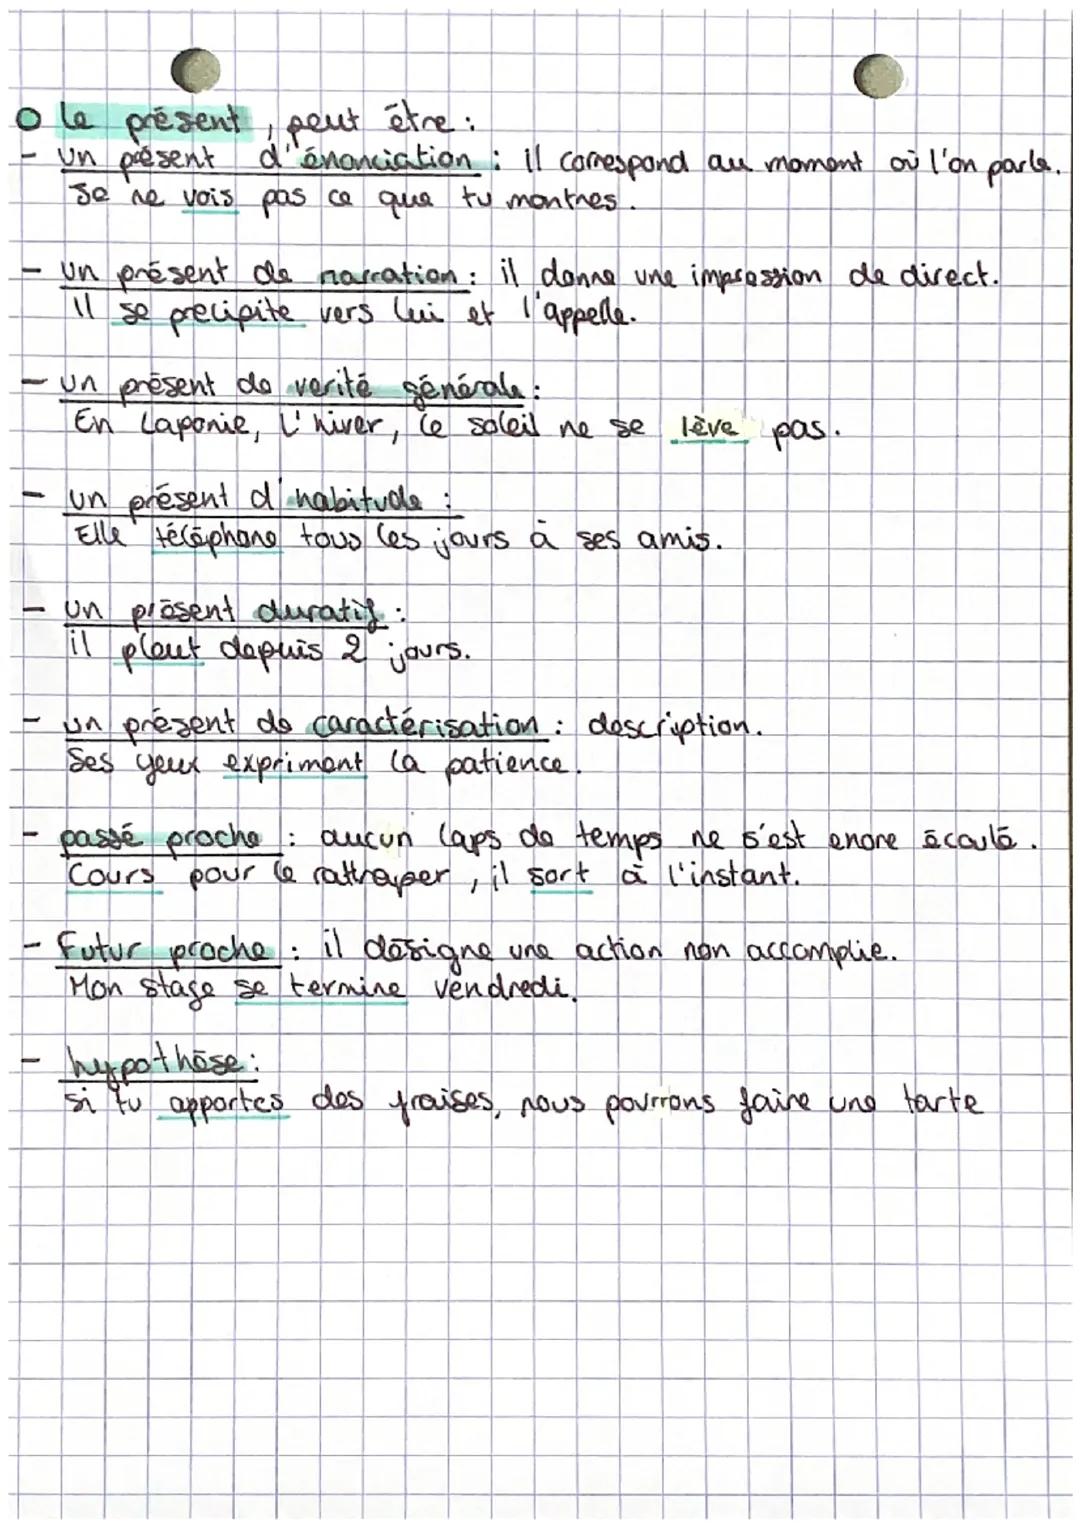 Le présent, peut être :
- un présent d'énonciation : il correspond au moment où l'on parle.
Je ne vois pas ce que tu montres.
- un présent de narration : il donne une impression de direct.
Il se precipite vers lui et l'appelle.
- un présent de verité générale :
En Laponie, l'hiver, le soleil ne se lève pas.
- un présent d'habitude :
Elle téléphone tous les jours à ses amis.
- un présent duratif :
il pleut depuis 2 jours.
- un présent de caractérisation : description.
Ses yeux expriment la patience.
- passé proche : aucun laps de temps ne s'est enore écoulé.
Cours pour le rattraper, il sort à l'instant.
- Futur proche : il désigne une action non accomplie.
Mon stage se termine vendredi.
- hypothèse :
si tu apportes des fraises, nous pourrons faire une tarte